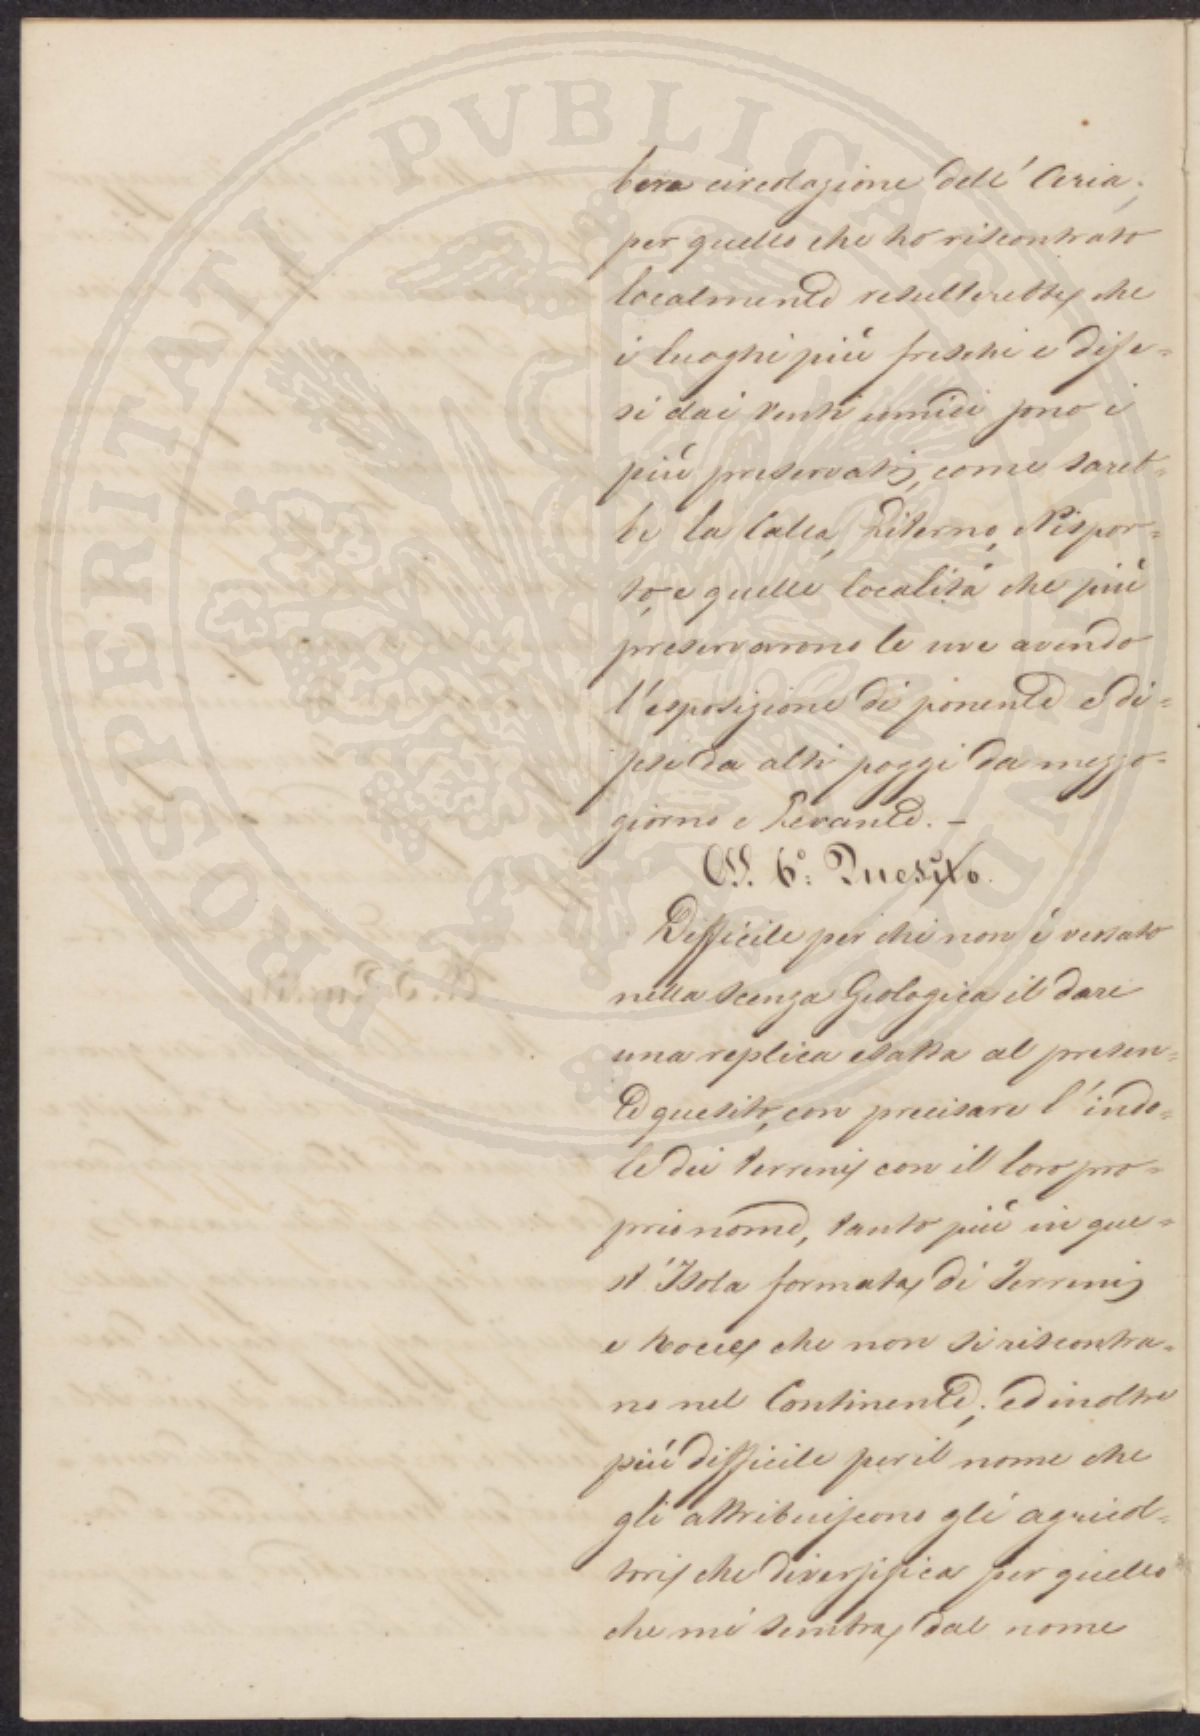 bera circolazione dell' Aria;
per quello che ho riscontrato
localmente resulterebbe che
i luoghi più freschi e dife=
si dai venti umidi sono i
più preservati, come sareb=
be la Calla, Literno, Nispor=
to, e quelle località che più
preservarono le uve avendo
l'esposizione di ponente e di=
fesi da alti poggi da mezzo=
giorno e Levante. –
Al 6°: Quesito.
Difficile per chi non è versato
nella scenza Geologica il dare
una replica esatta al presen=
te quesito, con precisare l'indo=
le dei terreni con il loro pro=
prio nome, tanto più in que=
st' Isola formata di Terreni
e Roccie che non si riscontra=
no nel Continente; ed inoltre
più difficile per il nome che
gli attribuiscono gli agricol=
tori che diversifica per quello
che mi sembra, dal nome
PROSPERITATI PVBLICAE AVGENDAE